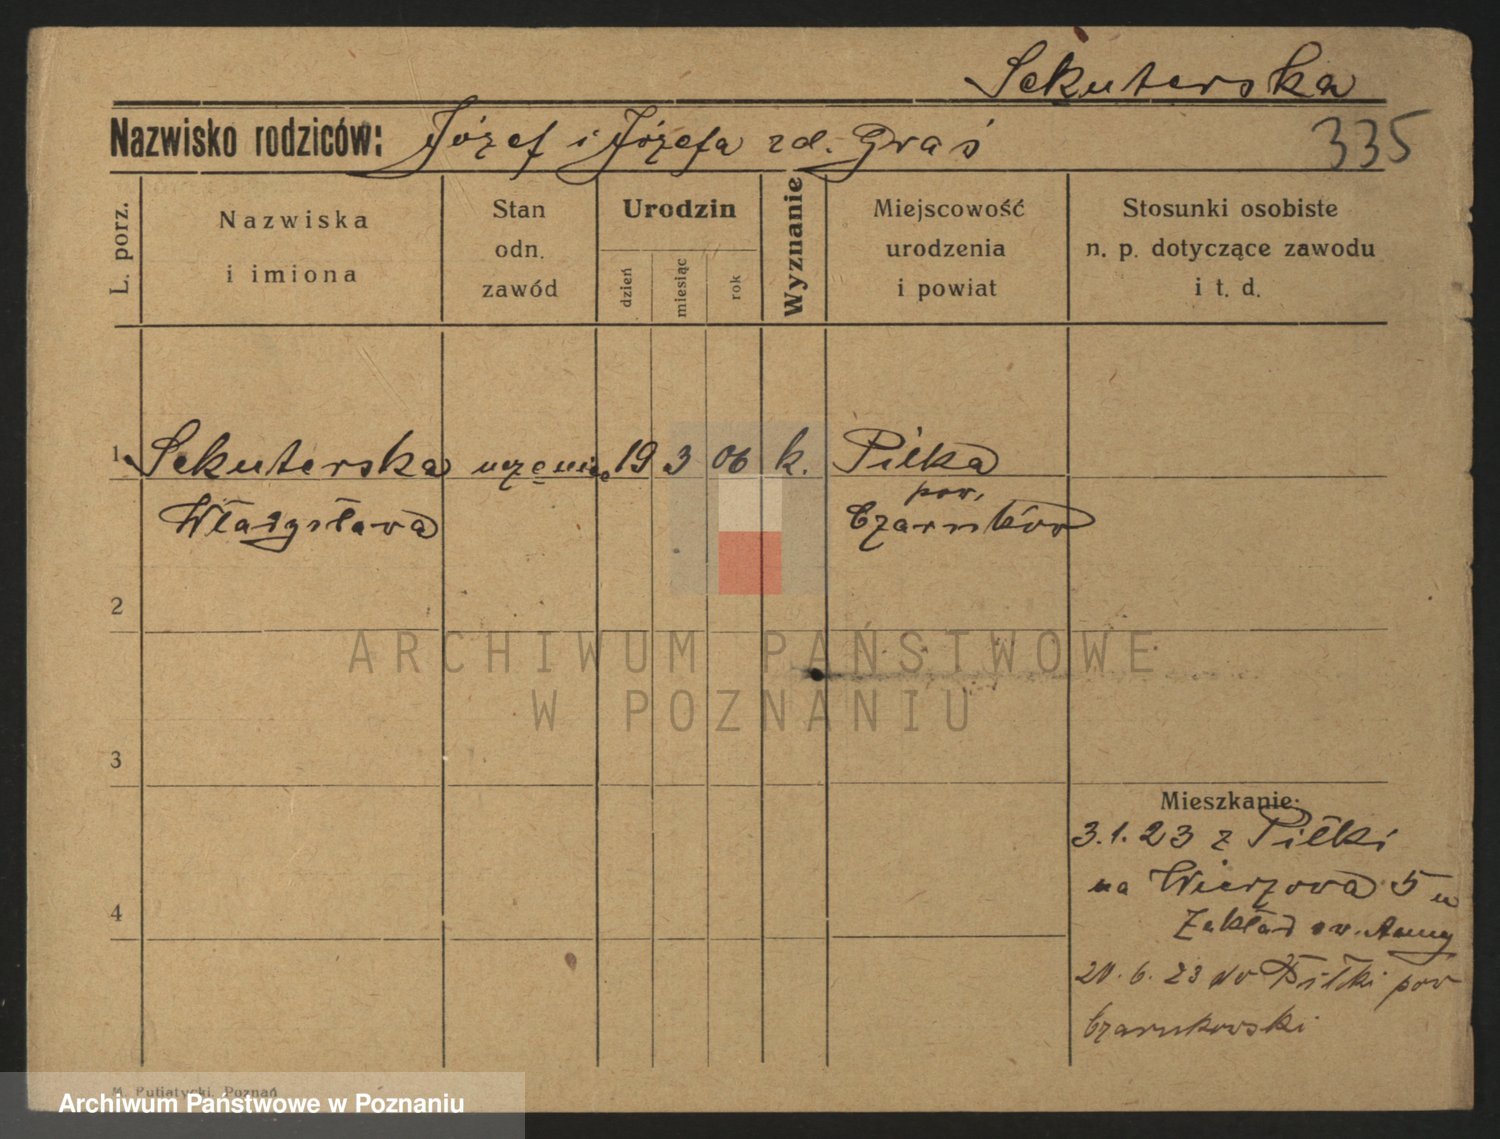 Sekuterska
Nazwisko rodziców: Józef i Józefa zd. Graś
335
L. porz.
Nazwiska
i imiona
Stan
odn.
zawód
Urodzin
dzień
miesiąc
rok
Wyznanie
Miejscowość
urodzenia
i powiat
Stosunki osobiste
n. p. dotyczące zawodu
i t. d.
1 Sekuterska uczenica 19 3 06 k. Piłka
pow.
Władysława Czarnków
2
ARCHIWUM PAŃSTWOWE
W POZNANIU
3
Mieszkanie:
3.1.23 z Piłki
na Wierzowa 5 u
4
Zakład św. Anny
20.6.23 do Piłki pow
Czarnkowski
M. Putiatycki, Poznań
Archiwum Państwowe w Poznaniu